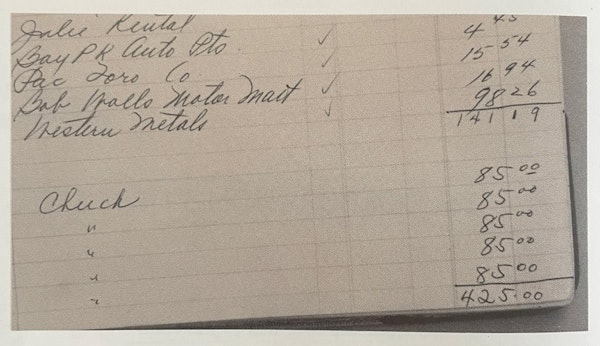 Julie Rental
Bay PR Auto Pts. ✓ 4 45
Pac Toro Co ✓ 15 54
Bob Walls Motor Mart ✓ 16 94
Western Metals ✓ 98 26
141 19
Chuck 85 00
" 85 00
" 85 00
" 85 00
" 85 00
425.00